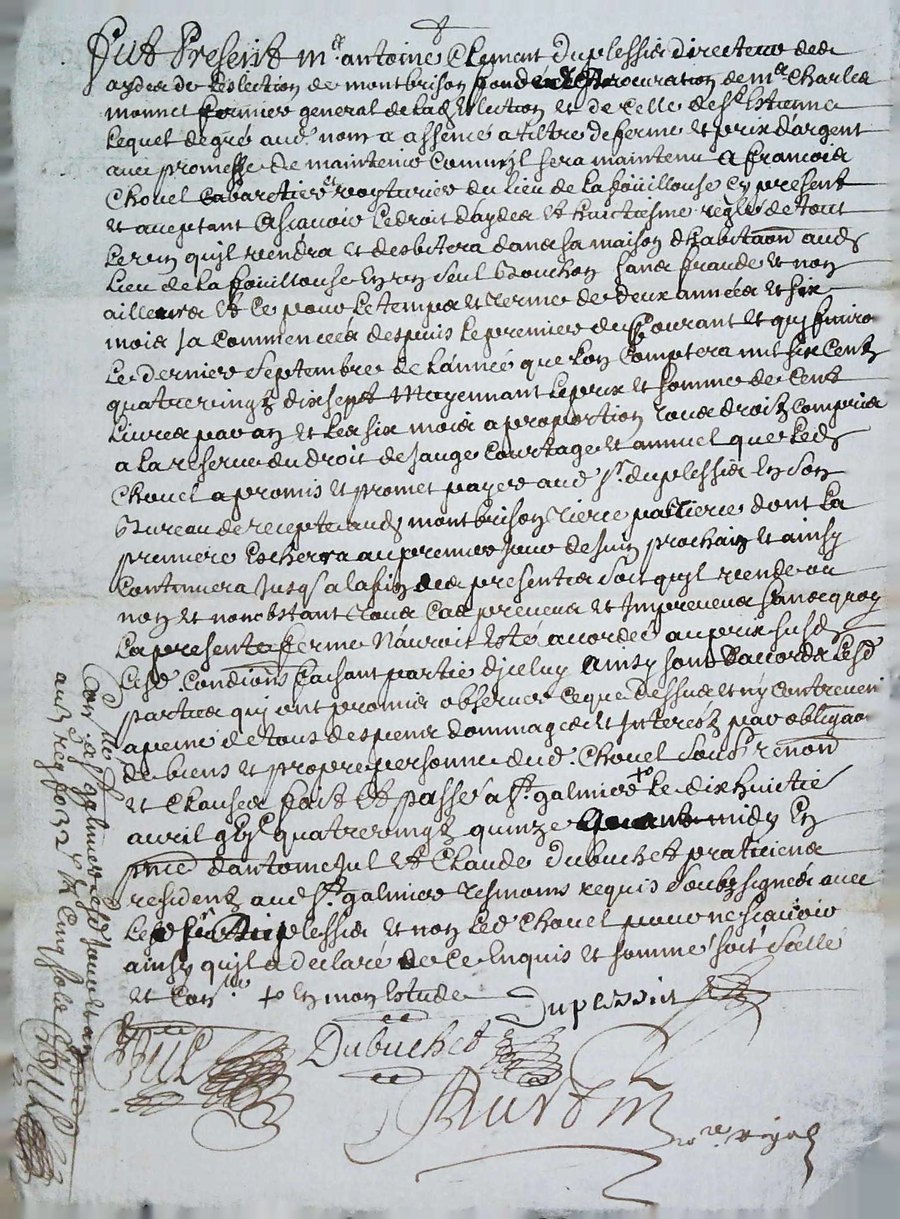 Fut Present mr antoine Clement Duplessis directeur des
aydes de Leslection de montbrison fondé de procuration de mr Charles
monnet fermier general de lad Eslection et de Celle de st Estienne
Lequel de gré aud. nom a assencé a tiltre de ferme et prix d'argent
avec promesse de maintenir Comm'jl sera maintenu a francois
Chovel Cabarttier et voytturier du lieu de La foüillouse Cy present
et aceptant Ascavoir Le droit d'aydes et huictiesme reglé de tout
Le vin quyl vendra et desbitera dans sa maison d'habitaon aud
Lieu de La foüillouse En vn seul Bouchon sans fraude et non
ailleurs et Ce pour Le temps et terme de deux années et six
mois Ja Commencées despuis Le premier du Courant et quy finiro
Le dernier Septembre de L'année que Lon Comptera mil six Centz
quatrevingtz dixsept Moyennant Le prix et somme de Cent
Livres par an et Les six mois a proportion tous droitz Compris
a La reserve du droit de Jauge Courtage et annuel que Led
Chovel a promis et promet payer aud sr. duplessis En son
Bureau de recepte aud montbrison tierce partie dont La
premiere Eschera au premier Jour de Juin prochain et ainsy
Continuera Jusqs a la fin des presentes soit quyl vende ou
non et nonobstant tous Cas preveus et Impreveus sans quoy
La presente ferme N'auroit Esté acordée au prix susd
Lesd. Condions faisant partie d'jceluy Ainsy sont d'acord Lesd
parties quy ont promis observer Ce que dessus et n'y Contreveni
a peine de tous despens dommages et Interestz par obligaon
de biens et propre personne dud. Chovel soubz renon
et Clauses fait et passé a st. galmier + Le dixhuictie
avril quatrevingtz quinze avant midy En
pnce d'antoine Jul et Claude dubuchet praticiens
residentz aud st galmier tesmoins requis soubzsignés avec
Led sr duplessis et non Led Chovel pour ne scavoir
ainsy quyl a declaré de Ce Enquis et sommé soit scellé
et Con + En mon Estude
Duplessis
Jul Dubuchet
nore royal
a st galmier
aud reg fo 32 Cinq solz